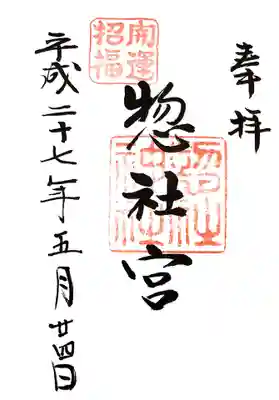 奉拝
開運
招福
惣社宮
平成二十七年五月廿四日